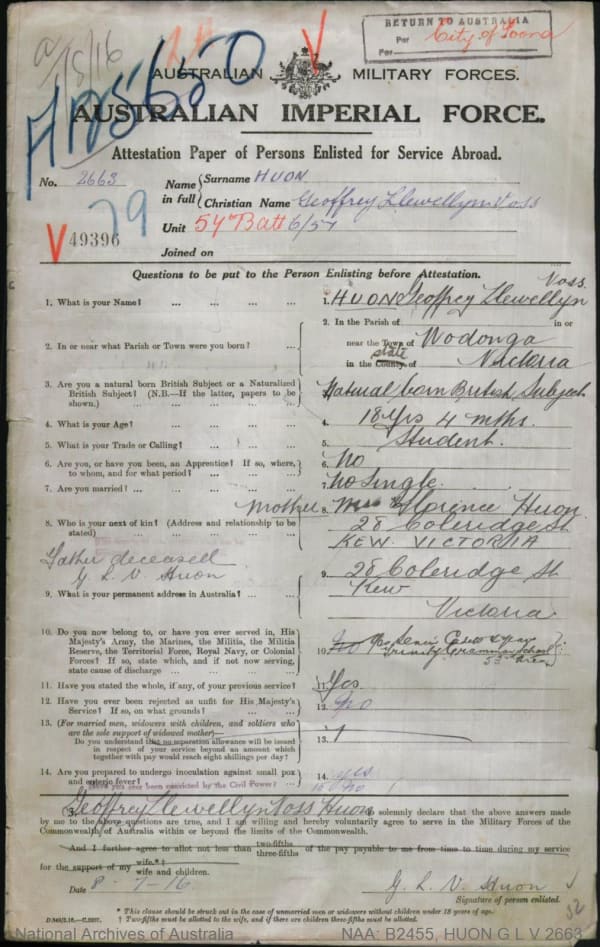 RETURN TO AUSTRALIA
Per City of Poona
Per
/5/16
AUSTRALIAN MILITARY FORCES.
AUSTRALIAN IMPERIAL FORCE.
Attestation Paper of Persons Enlisted for Service Abroad.
No. 2663 Name in full Surname HUON
Christian Name Geoffrey Llewellyn Voss
79 Unit 57 Batt 6/57
V 49396
Joined on
Questions to be put to the Person Enlisting before Attestation.
1. What is your Name? ... ... ... 1. HUON Geoffrey Llewellyn Voss
2. In or near what Parish or Town were you born? ... 2. In the Parish of in or
near the Town of Wodonga
in the County of state Victoria
3. Are you a natural born British Subject or a Naturalized British Subject? (N.B.—If the latter, papers to be shown.) ... Natural born British Subject
4. What is your Age? ... ... ... 4. 18 yrs 4 mths.
5. What is your Trade or Calling? ... ... ... 5. Student.
6. Are you, or have you been, an Apprentice? If so, where, to whom, and for what period? ... ... 6. No
7. Are you married? ... ... ... ... 7. No Single.
8. Who is your next of kin? (Address and relationship to be stated) ... ... ... mother 8. Mrs Florence Huon
28 Coleridge St
KEW. VICTORIA
Father deceased
G. L. V Huon
9. What is your permanent address in Australia? ... 9. 28 Coleridge St
Kew
Victoria
10. Do you now belong to, or have you ever served in, His Majesty's Army, the Marines, the Militia, the Militia Reserve, the Territorial Force, Royal Navy, or Colonial Forces? If so, state which, and if not now serving, state cause of discharge ... ... 10. No Senior Cadets
Trinity Grammar School
11. Have you stated the whole, if any, of your previous service? 11. Yes.
12. Have you ever been rejected as unfit for His Majesty's Service? If so, on what grounds? ... ... 12. No
13. (For married men, widowers with children, and soldiers who are the sole support of widowed mother)—
Do you understand that no separation allowance will be issued in respect of your service beyond an amount which together with pay would reach eight shillings per day? 13.
14. Are you prepared to undergo inoculation against small pox and enteric fever? ... 14. yes
Have you ever been convicted by the Civil Power? 15 no
I, Geoffrey Llewellyn Voss Huon do solemnly declare that the above answers made
by me to the above questions are true, and I am willing and hereby voluntarily agree to serve in the Military Forces of the
Commonwealth of Australia within or beyond the limits of the Commonwealth.
And I further agree to allot not less than two-fifths three-fifths of the pay payable to me from time to time during my service
for the support of my wife.*† wife and children.
Date 8-7-16 G. L. V Huon
Signature of person enlisted.
* This clause should be struck out in the case of unmarried men or widowers without children under 18 years of age.
† Two-fifths must be allotted to the wife, and if there are children three-fifths must be allotted.
National Archives of Australia NAA: B2455, HUON G L V 2663